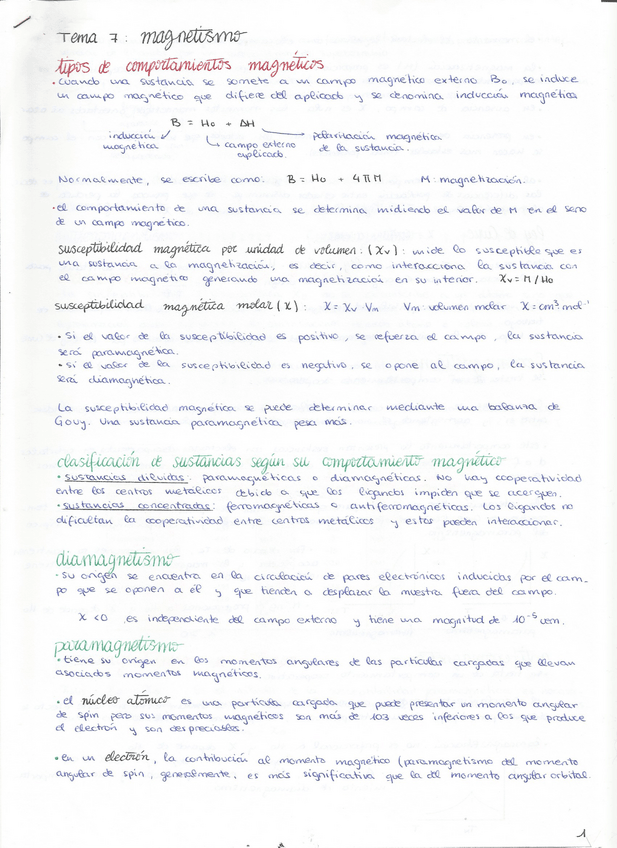 Tema 7: magnetismo
tipos de comportamientos magnéticos
• cuando una sustancia se somete a un campo magnético externo Bo, se induce
un campo magnético que difiere del aplicado y se denomina inducción magnética
B = Ho + ΔH
inducción magnética
campo externo aplicado.
polarización magnética de la sustancia.
Normalmente, se escribe como: B = Ho + 4πM M: magnetización.
• el comportamiento de una sustancia se determina midiendo el valor de M en el seno
de un campo magnético.
susceptibilidad magnética por unidad de volumen: (χv): mide lo susceptible que es
una sustancia a la magnetización, es decir, como interacciona la sustancia con
el campo magnético generando una magnetización en su interior. χv = M/Ho
susceptibilidad magnética molar (χ): χ = χv · Vm Vm: volumen molar χ = cm³·mol⁻¹
• Si el valor de la susceptibilidad es positivo, se refuerza el campo, la sustancia
será paramagnética.
• si el valor de la susceptibilidad es negativo, se opone al campo, la sustancia
será diamagnética.
La susceptibilidad magnética se puede determinar mediante una balanza de
Gouy. Una sustancia paramagnética pesa más.
clasificación de sustancias según su comportamiento magnético
• sustancias diluidas: paramagnéticas o diamagnéticas. No hay cooperatividad
entre los centros metálicos debido a que los ligandos impiden que se acerquen.
• sustancias concentradas: ferromagnéticas o antiferromagnéticas. Los ligandos no
dificultan la cooperatividad entre centros metálicos y estos pueden interaccionar.
diamagnetismo
• su origen se encuentra en la circulación de pares electrónicos inducidas por el cam-
po que se oponen a él y que tienden a desplazar la muestra fuera del campo.
χ < 0 es independiente del campo externo y tiene una magnitud de 10⁻⁵ uem.
paramagnetismo
• tiene su origen en los momentos angulares de las partículas cargadas que llevan
asociados momentos magnéticos.
• el núcleo atómico es una partícula cargada que puede presentar un momento angular
de spin pero sus momentos magnéticos son más de 103 veces inferiores a los que produce
el electrón y son despreciables.
• en un electrón, la contribución al momento magnético (paramagnetismo del momento
angular de spin, generalmente, es más significativa que la del momento angular orbital.
1